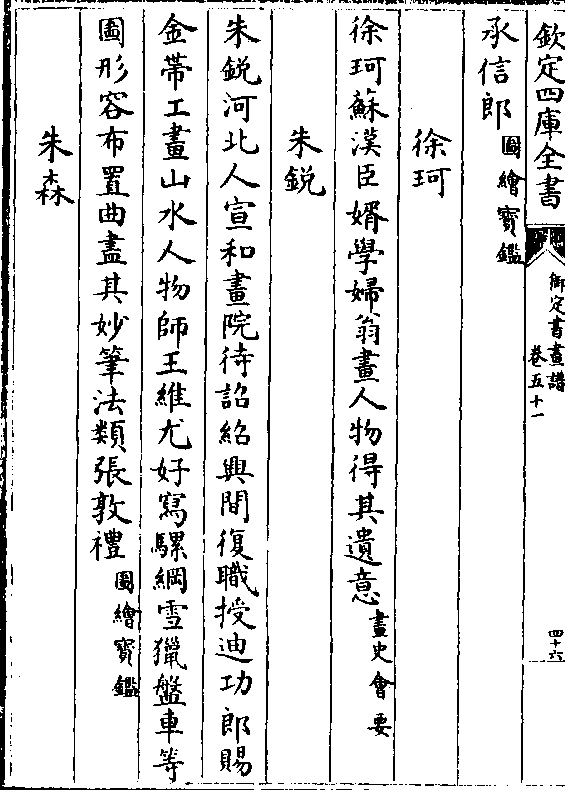 欽定四庫全書
御定書畫譜
卷五十一
四十六
承信郎圖繪寶鑑
徐珂
徐珂蘇漢臣婿學婦翁畫人物得其遺意畫史會要
朱銳
朱銳河北人宣和畫院待詔紹興間復職授迪功郎賜
金帶工畫山水人物師王維尤好寫騾綱雪獵盤車等
圖形容布置曲盡其妙筆法類張敦禮圖繪寶鑑
朱森